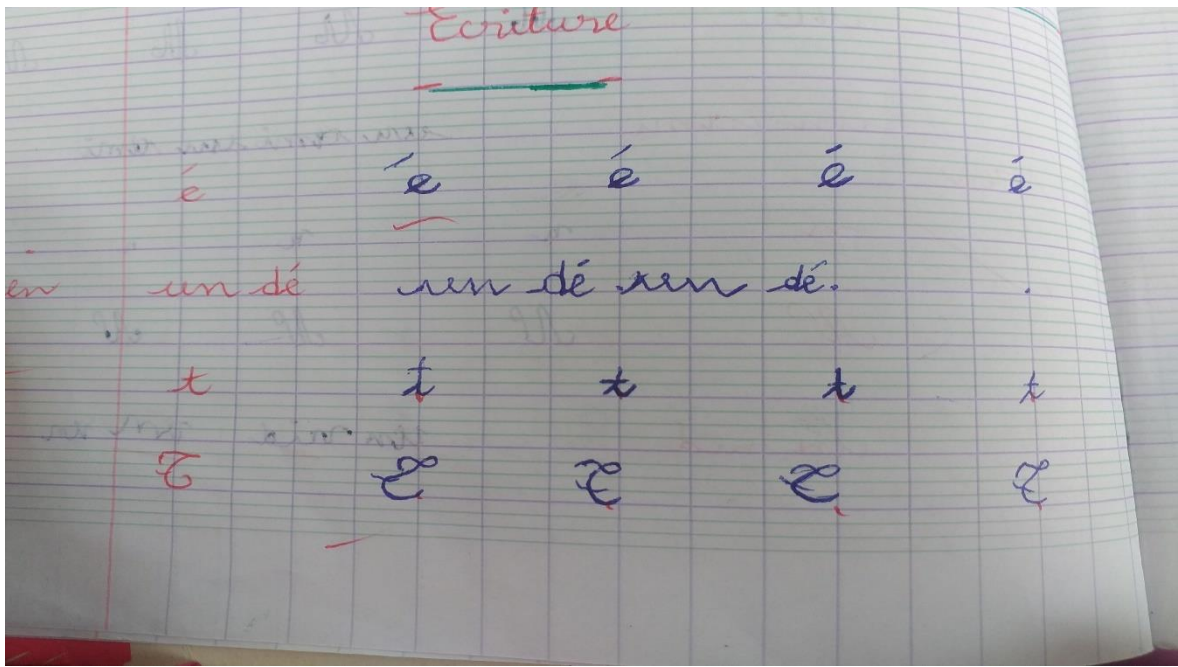 Ecriture
é é é é é
en un dé un dé un dé.
t t t t t
T T T T T